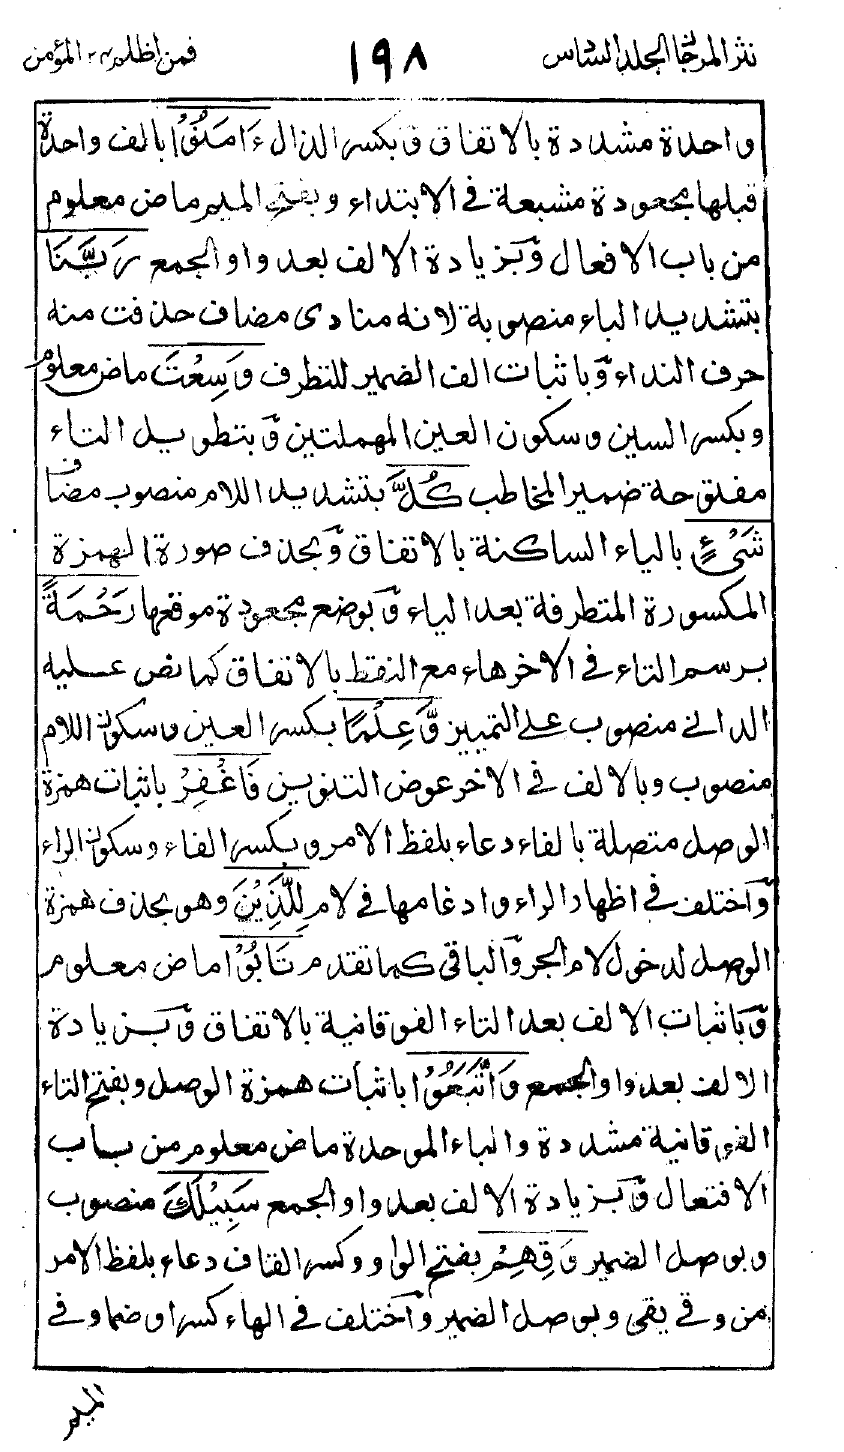 نثر المرجان الجلد السادس ١٩٨ فمن اظلم ٢٤ المؤمن
واحدة مشددة بالاتفاق وبكسر الذال ءَامَنُوْا بالف واحدة
قبلها مجعودة مشبعة في الابتداء وبفتح الميم ماض معلوم
من باب الافعال وبزيادة الالف بعد واو الجمع رَبَّنَا
بتشديد الباء منصوبة لانه منادى مضاف حذفت منه
حرف النداء وباثبات الف الضمير للتطرف وَسِعْتَ ماض معلوم
وبكسر السين وسكون العين المهملتين وبتطويل التاء
مفتوحة ضمير المخاطب كُلَّ بتشديد اللام منصوب مضاف
شَيْءٍ بالياء الساكنة بالاتفاق وبحذف صورة الهمزة
المكسورة المتطرفة بعد الياء وبوضع مجعودة موقعها رَحْمَةً
برسم التاء في الاخر هاء مع النقط بالاتفاق كما نص عليه
الداني منصوب على التمييز وَّعِلْمًا بكسر العين وسكون اللام
منصوب وبالالف في الاخر عوض التنوين فَاغْفِرْ باثبات همزة
الوصل متصلة بالفاء دعاء بلفظ الامر وبكسر الفاء وسكون الراء
واختلف في اظهار الراء وادغامها في لام لِلَّذِيْنَ وهو بحذف همزة
الوصل لدخول لام الجر والباقي كما تقدم تَابُوْا ماض معلوم
وباثبات الالف بعد التاء الفوقانية بالاتفاق وبزيادة
الالف بعد واو الجمع وَاتَّبَعُوْا باثبات همزة الوصل وبفتح التاء
الفوقانية مشددة والباء الموحدة ماض معلوم من باب
الافتعال وبزيادة الالف بعد واو الجمع سَبِيْلَكَ منصوب
وبوصل الضمير وَقِهِمْ بفتح الواو وكسر القاف دعاء بلفظ الامر
من وقى يقى وبوصل الضمير واختلف في الهاء كسرا وضما وفي
الميم